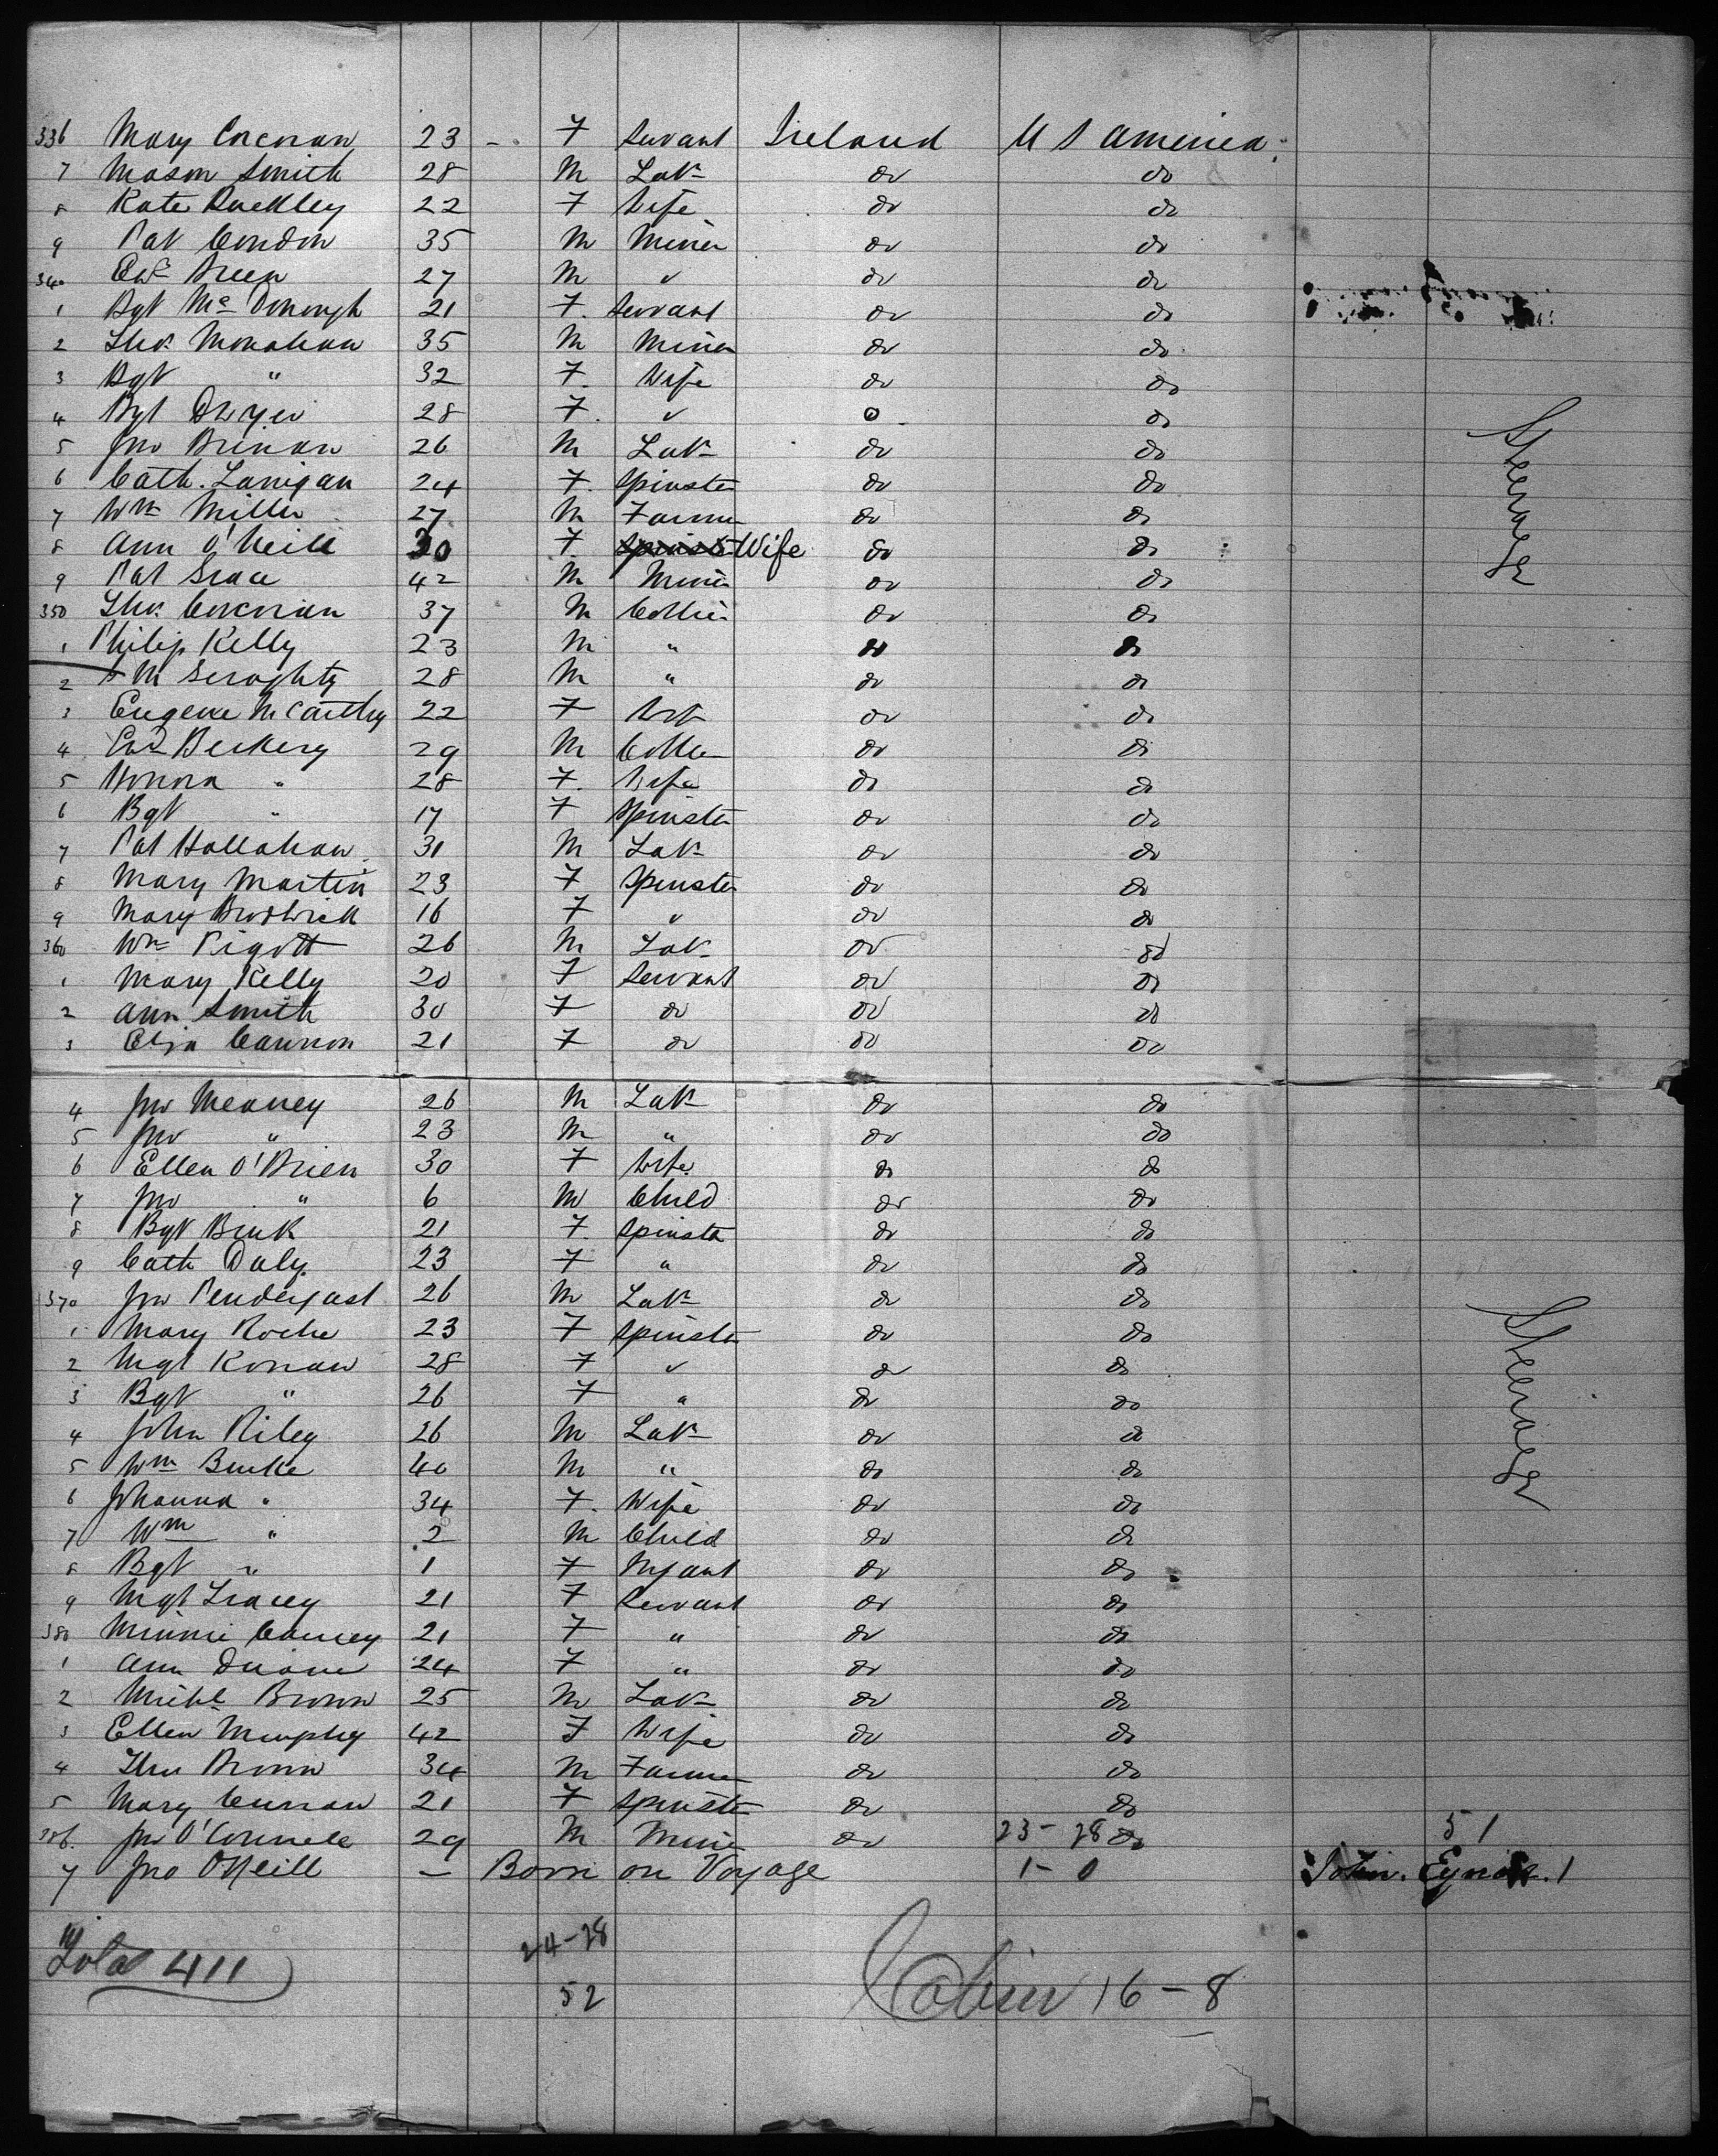 336 Mary Corcoran 23 - F Servant Ireland U S America
7 Mason Smith 28 M Lab do do
8 Kate Buckley 22 F Wife do do
9 Pat Condon 35 M Miner do do
340 Ewd Breen 27 M " do do
1 Bgt McDonough 21 F. Servant do do
2 Thos Monahan 35 M Miner do do
3 Bgt " 32 F. Wife do do
4 Bgt Dwyer 28 F. " do do
5 Jno Brinan 26 M Lab do do
6 Cath. Lanigan 24 F. Spinster do do
7 Wm Miller 27 M Farmer do do
8 Ann O'Neill 30 F. Spinster Wife do do
9 Pat Grace 42 M Miner do do
350 Thos. Corcoran 37 M Collier do do
1 Philip Kelly 23 M " do do
2 M Geraghty 28 M " do do
3 Eugene McCarthy 22 F Wife do do
4 Ewd Berkery 29 M Collier do do
5 Honora " 28 F. Wife do do
6 Bgt " 17 F Spinster do do
7 Pat Hallahan 31 M Lab do do
8 Mary Martin 23 F Spinster do do
9 Mary Brodrick 16 F " do do
360 Wm Pigott 26 M Lab do do
1 Mary Kelly 20 F Servant do do
2 Ann Smith 30 F do do do
3 Eliza Cannon 21 F do do do
4 Jno Meaney 26 M Lab do do
5 Jno " 23 M " do do
6 Ellen O'Brien 30 F Wife do do
7 Jno " 6 M Child do do
8 Bgt 21 F. Spinster do do
9 Cath Daly 23 F " do do
370 Jno Pendergast 26 M Lab do do
1 Mary Roche 23 F Spinster do do
2 Mgt Ronan 28 F " do do
3 Bgt " 26 F " do do
4 John Riley 26 M Lab do do
5 Wm Burke 40 M " do do
6 Johanna " 34 F. Wife do do
7 Wm " 2 M Child do do
8 Bgt " 1 F Infant do do
9 Mgt Tracey 21 F Servant do do
380 Minnie 21 F " do do
1 Ann Duane 24 F " do do
2 Michl Brown 25 M Lab do do
3 Ellen Murphy 42 F Wife do do
4 Thos Brown 34 M Farmer do do
5 Mary Curran 21 F Spinster do do
386. Jno O'Connell 29 M Miner do 23-28 do 51
7 Jno O'Neill — Born on Voyage 1-0 1
Steerage
Steerage
24-28
Total 411
52
Cabin 16-8